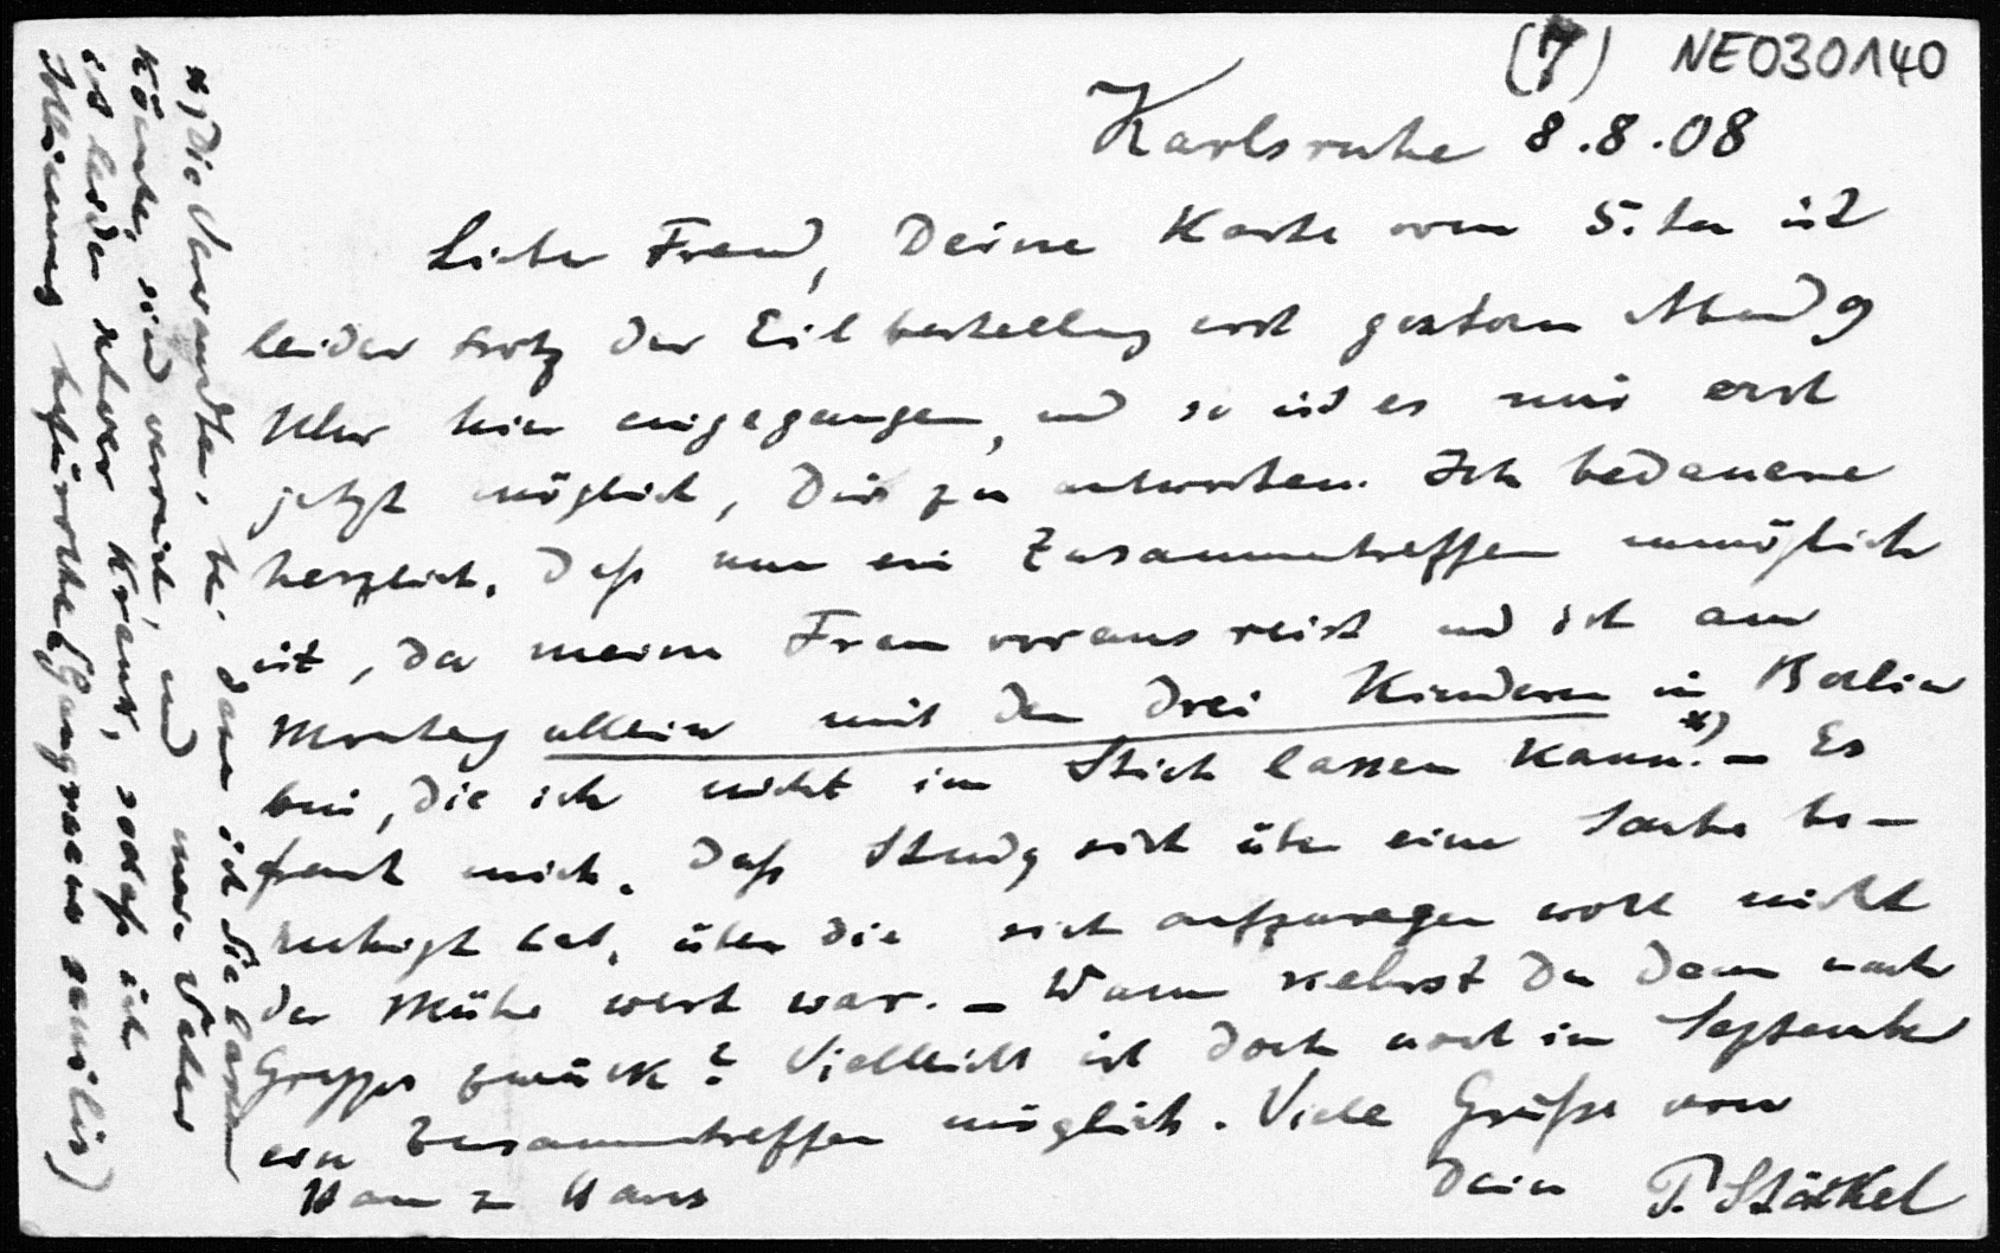 (7) NE030140
Karlsruhe 8.8.08
Lieber Freund, Deine Karte vom 5. ten ist
leider trotz der Eilbestellung erst gestern Abend 9
Uhr hier eingegangen, und so ist es mir erst
jetzt möglich, Dir zu antworten. Ich bedauere
herzlich, daß nun ein Zusammentreffen unmöglich
ist, da meine Frau voraus reist und ich am
Montag allein mit den drei Kindern in Berlin
bin, die ich nicht im Stich lassen kann.*) – Es
freut mich, daß Study sich über eine Sache be-
ruhigt hat, über die sich aufzuregen wohl nicht
der Mühe wert war. – Wann kehrst Du denn nach
Gryps zurück? Vielleicht ist doch noch im September
ein Zusammentreffen möglich. Viele Grüße von
Haus zu Haus
Dein P. Stäckel
*) Die Verwandten, bei denen ich sie lassen
könnte, sind verreist, und mein Vater
ist leider schwer krank, sodaß ich
Schlimmes befürchte (Gangraena senilis)